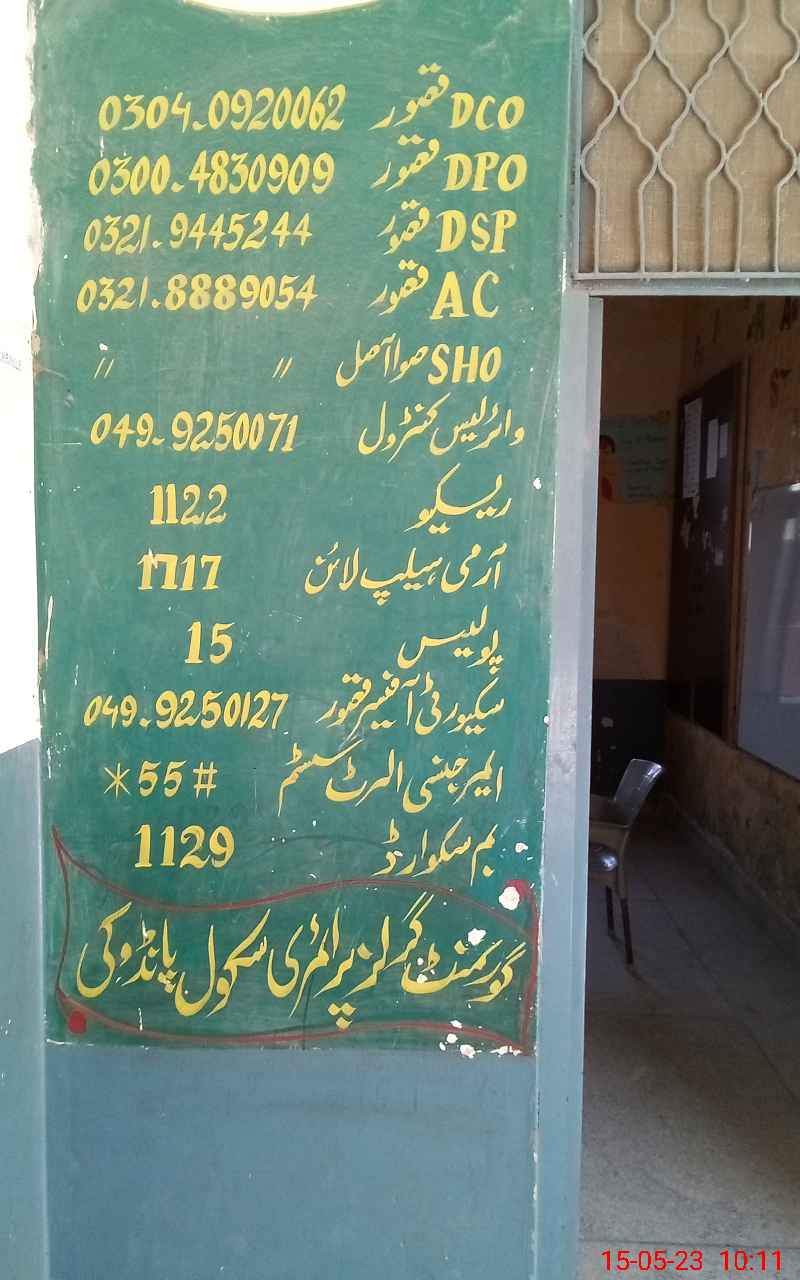 DCO قصور 0304-0920062
DPO قصور 0300-4830909
DSP قصور 0321-9445244
AC قصور 0321-8889054
SHO صوا آصل " "
وائرلیس کنٹرول 049-9250071
ریسکیو 1122
آرمی ہیلپ لائن 1717
پولیس 15
سکیورٹی آفیسر قصور 049-9250127
ایمرجنسی الرٹ سسٹم *55#
بم سکوارڈ 1129
گورنمنٹ گرلز پرائمری سکول پانڈوکی
15-05-23 10:11